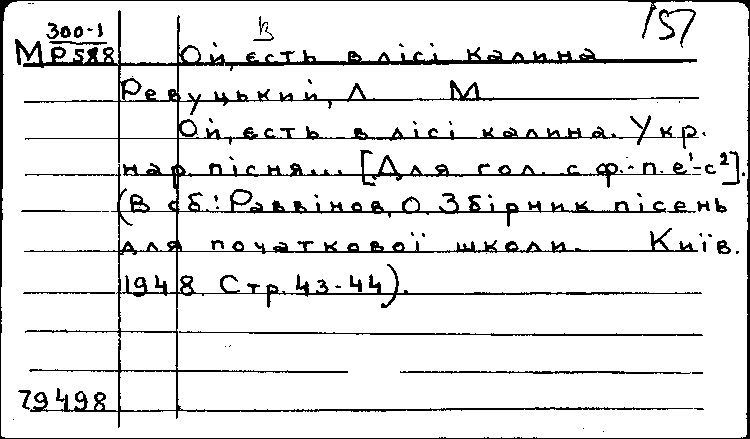 300-1
В
157
М Р588
Ой, єсть в лісі калина
Ревуцький, Л. М
Ой, єсть в лісі калина. Укр.
нар. пісня... [Для гол. с ф.-п. e¹-c²].
(В сб.: Раввінов, О. Збірник пісень
для початкової школи. Київ.
1948. Стр. 43-44).
79498